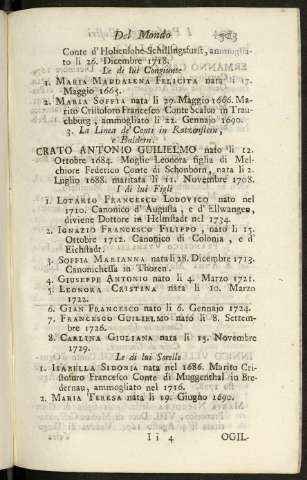 Del Mondo 503
Conte d'Hohenlohe-Schillingsfurst, ammoglia-
to li 26. Dicembre 1718.
Le di lui Congiunte
1. MARIA MADDALENA FELICITA nata li 17.
Maggio 1665.
2. MARIA SOFFIA nata li 29. Maggio 1666. Ma-
rito Cristoforo Francesco Conte Scaluo in Trau-
chburg, ammogliato li 22. Gennajo 1690.
3. La Linea de' Conti in Katzenstein,
e Baldern.
CRATO ANTONIO GUILIELMO nato li 12.
Ottobre 1684. Moglie Leonora figlia di Mel-
chiore Federico Conte di Schonborn, nata li 2.
Luglio 1688. maritata li 11. Novembre 1708.
I di lui Figli
1. LOTARIO FRANCESCO LODOVICO nato nel
1710. Canonico d'Augusta, e d'Ellwangen,
diviene Dottore in Helmstadt nel 1734.
2. IGNAZIO FRANCESCO FILIPPO, nato li 15.
Ottobre 1712. Canonico di Colonia, e d'
Eichstadt.
3. SOFFIA MARIANNA nata li 28. Dicembre 1713.
Canonichessa in Thoren.
4. GIUSEPPE ANTONIO nato li 4. Marzo 1721.
5. LEONORA CRISTINA nata li 10. Marzo
1722.
6. GIAN FRANCESCO nato li 6. Gennajo 1724.
7. FRANCESCO GUILIELMO nato li 8. Settem-
bre 1726.
8. CARLINA GIULIANA nata li 15. Novembre
1729.
Le di lui Sorelle
1. ISABELLA SIDONIA nata nel 1686. Marito Cri-
stoforo Francesco Conte di Muggenthal in Bre-
dernau, ammogliato nel 1716.
2. MARIA TERESA nata li 19. Giugno 1690.
I i 4 OGIL-